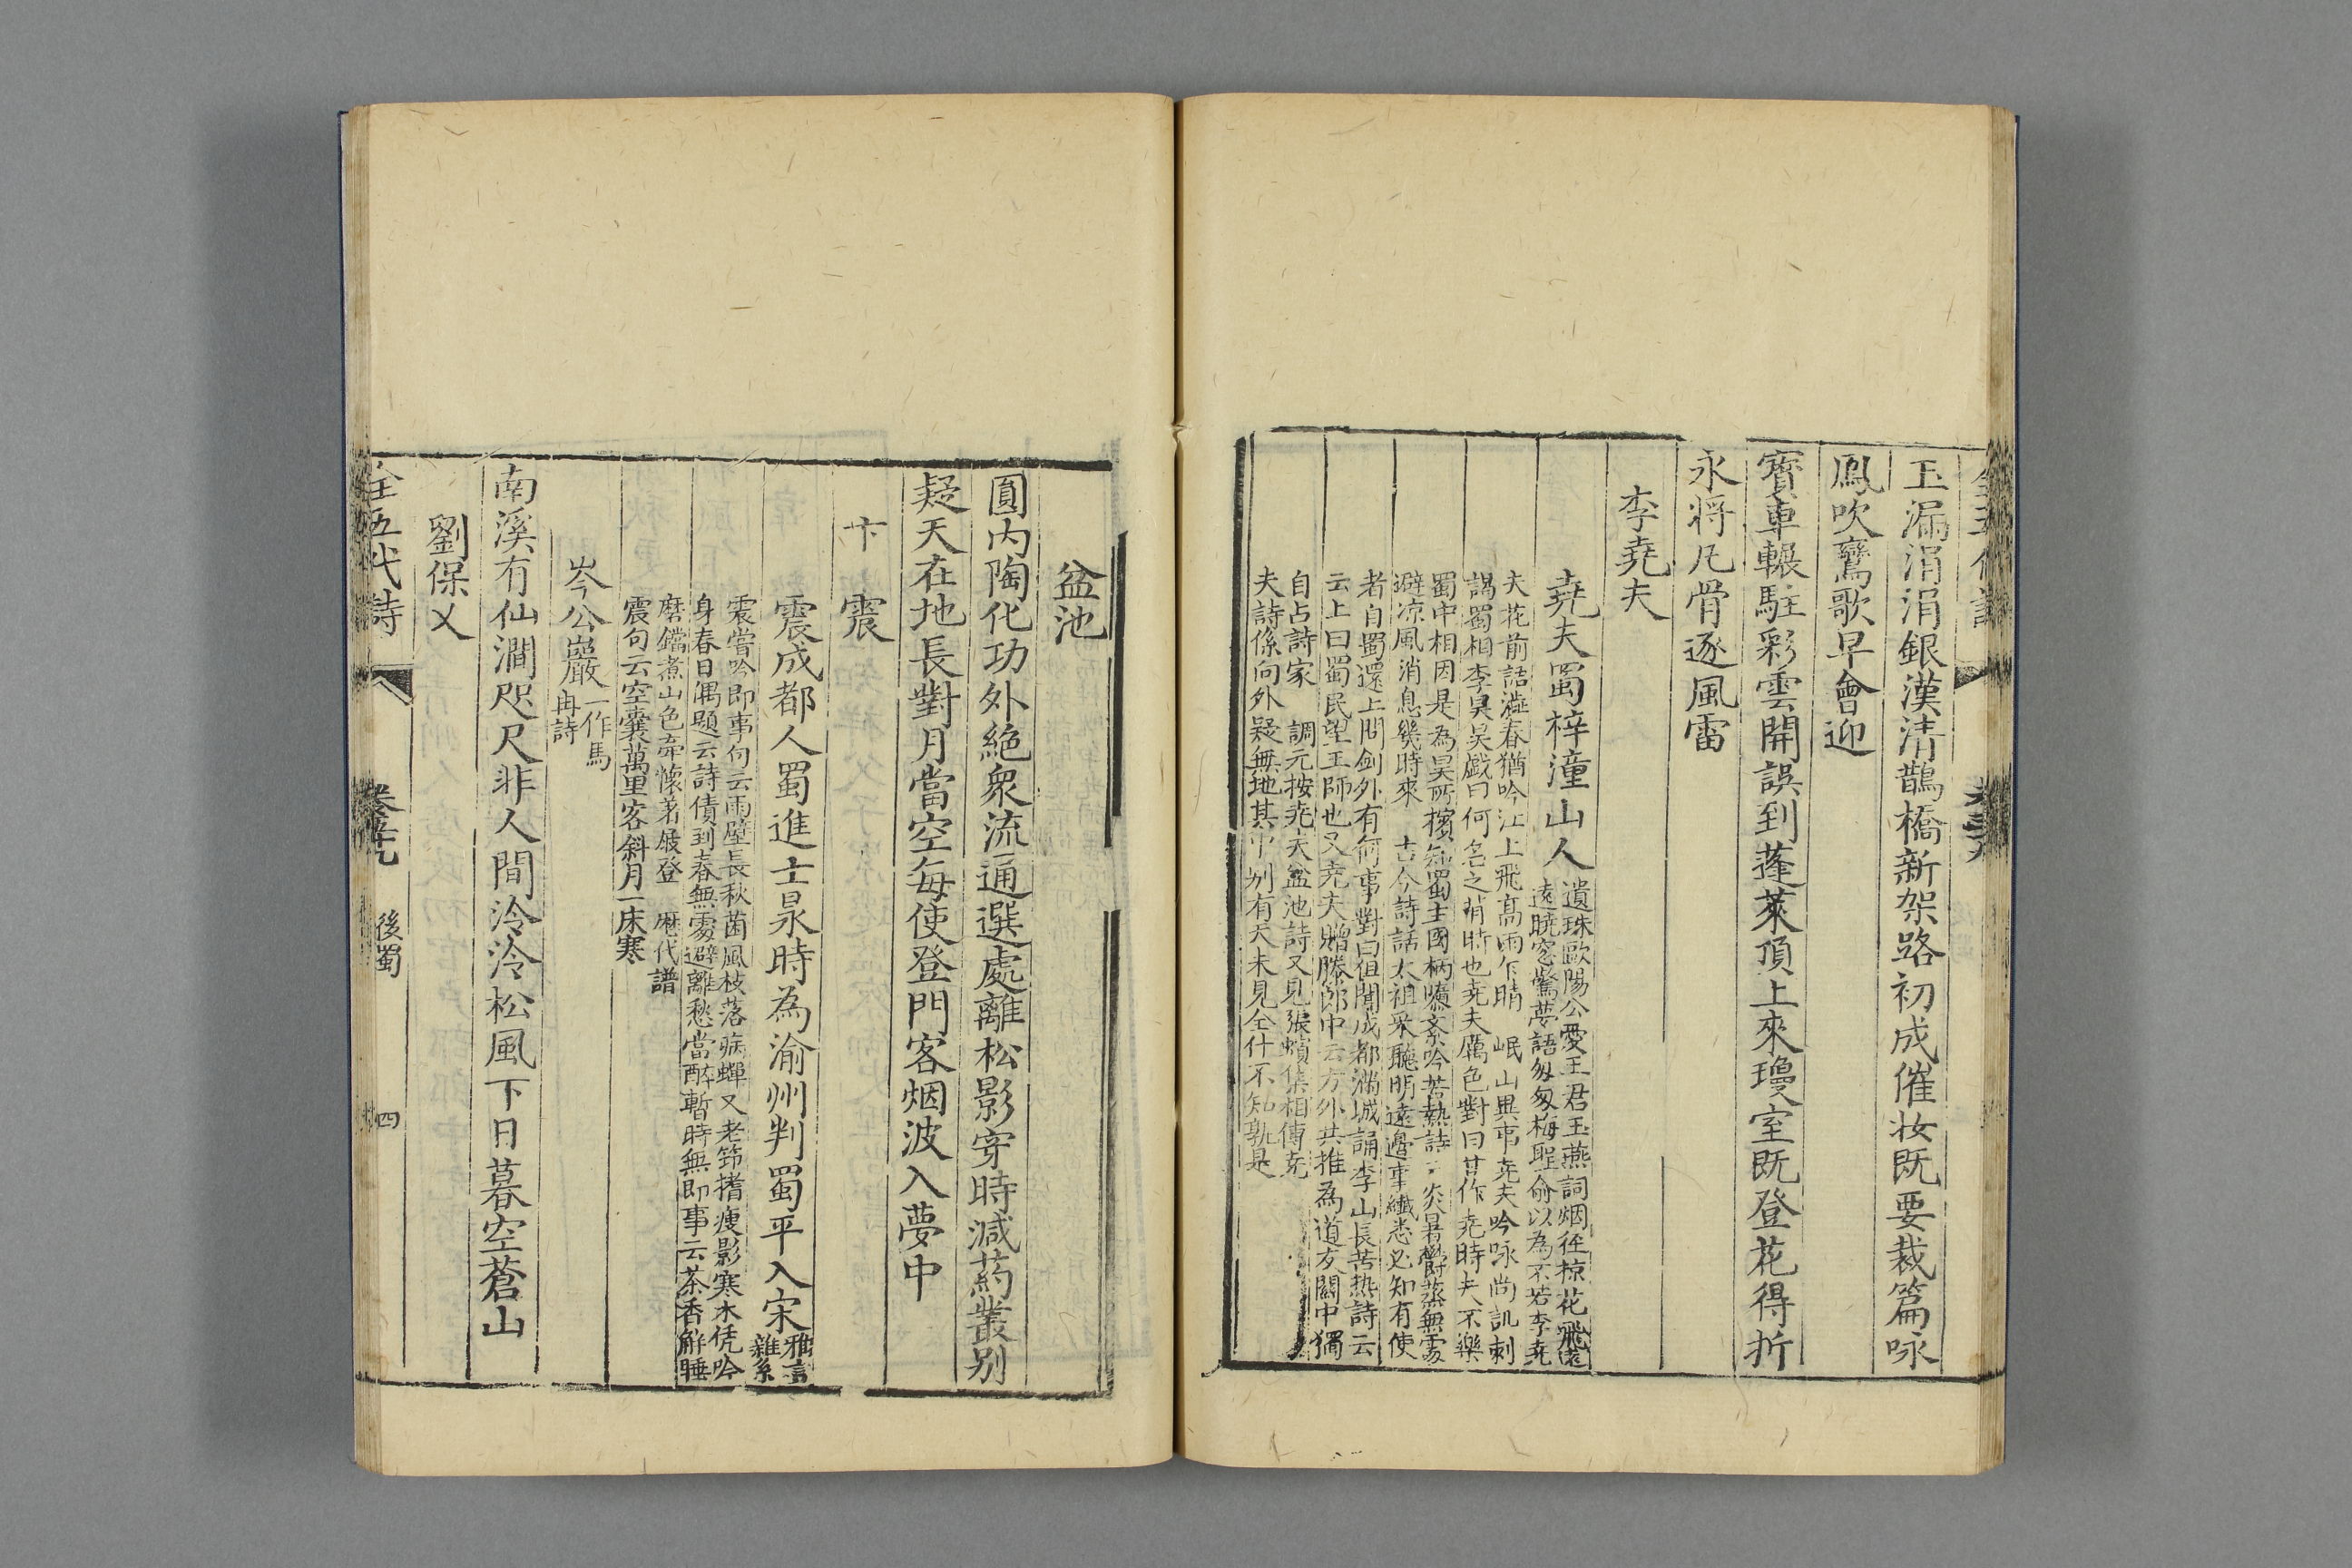 玉漏涓涓銀漢清鵲橋新架路初成催妝既要裁篇咏
鳳吹鸞歌早會迎
寶車輾駐彩雲開誤到蓬萊頂上來瓊室既登花得折
永將凡骨逐風雷
李堯夫
堯夫蜀梓潼山人
遺珠歐陽公愛王君玉燕詞烟徑掠花飛遠
遠曉窓驚夢語匆匆梅聖俞以為不若李堯
夫花前語澁春猶吟江上飛高雨乍晴 岷山異事堯夫吟咏尚譏刺
謁蜀相李昊昊戯曰何名之背時也堯夫厲色對曰甘作堯時夫不樂
蜀中相因是為昊所擯知蜀主國柄隳紊吟苦熱詩云炎暑鬱蒸無處
避凉風消息幾時來 古今詩話太祖采聽明遠邊事纎悉必知有使
者自蜀還上問劍外有何事對曰但聞成都滿城誦李山長苦热詩云
云上曰蜀民望王師也又堯夫贈勝郎中云方外共推為道友關中獨
自占詩家 調元按堯夫盆池詩又見張蠙集相傳堯
夫詩係向外疑無地其中別有天未見全什不知孰是
盆池
圓内陶化功外絶衆流通選處離松影穿時減葯叢別
疑天在地長對月當空每使登門客烟波入夢中
卞震
震成都人蜀進士昶時為渝州判蜀平入宋
雅言
雜系
震嘗吟即事句云雨壁長秋菌風枝落病蟬又老筇搘瘦影寒木凭吟
身春日偶題云詩債到春無處避離愁當醉暫時無即事云茶香解睡
磨鐺煮山色牽懷著屐登 歷代譜
震句云空囊萬里客斜月一床寒
岑公巖
一作馬
冉詩
南溪有仙澗咫尺非人間泠泠松風下日暮空蒼山
劉保乂
全五代詩
後蜀
四